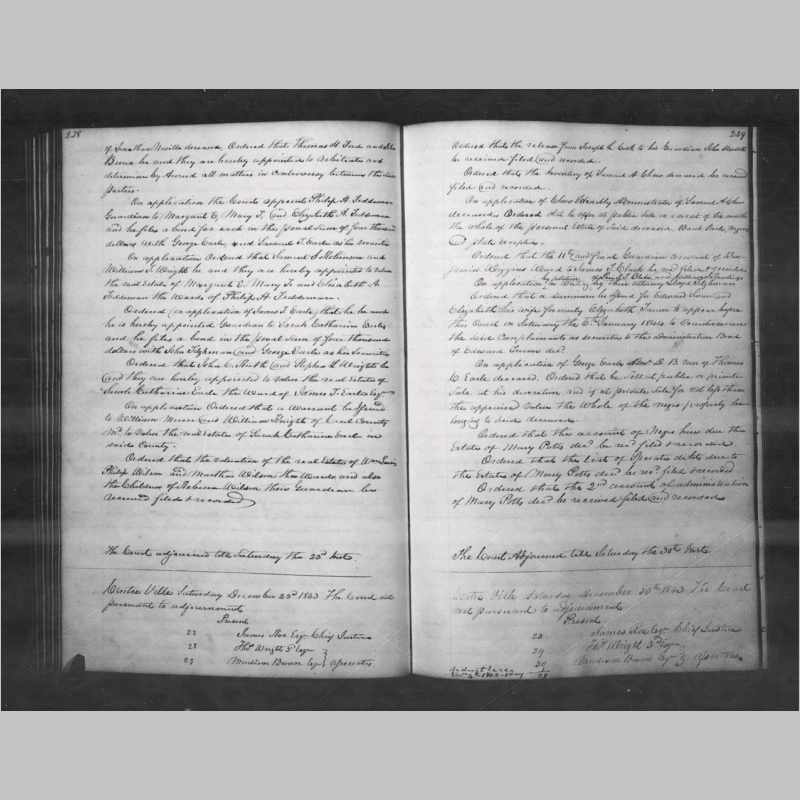 238
of Jonathan Neville deceased, Ordered that Thomas H. Ford and John
Brown be and they are hereby appointed to arbitrate and
determine by Award all matters in controversy between the said
parties.
On application the Court appoints Philip H. Feddeman
Guardian to Margaret E, Mary T, and Elizabeth A. Feddeman
and he files a bond for each in the penal Sum of four thousand
dollars with George Earle and Samuel T. Earle as his securities
On application Ordered that Samuel S. Robinson and
William T. Wright be and they are hereby appointed to value
the real estate of Margaret E, Mary T. and Elizabeth A.
Feddeman the Wards of Philip H. Feddeman.
Ordered on application of James T. Earle, that he be and
he is hereby appointed Guardian to Sarah Catharine Earle,
and he files a bond in the penal Sum of four thousand
dollars with John Tilghman and George Earle as his Securities
Ordered that John C. Ruth and Stephen L. Wright be
and they are hereby appointed to value the real Estate of
Sarah Catharine Earle the Ward of James T. Earle Esqr
On application Ordered that a Warrant be issued
to William and William Knight of Kent County
Md. to value the real estate of Sarah Catharine Earle in
said County.
Ordered that the valuation of the real Estate of Wm
Philip Wilson and Martha Wilson the Wards and also
the Children of Rebecca Wilson their Guardian be
received filed & recorded
The Court adjourned till Saturday the 23d Inst.
Centre Ville Saturday December 23d 1843 The Court met
pursuant to adjournment
Present
23 James Roe Esqr Chief Justice
23 Thos Wright 3d Esqr
23 Madison Brown Esqr } Associates
239
Ordered that the release from Joseph to his Guardian John
be received filed and recorded.
Ordered that the Inventory of Samuel A. Chew deceased be recd
filed and recorded.
On application of Administrator of Samuel A. Chew
deceased Ordered that he offer at public Sale on a credit of six months
the whole of the personal Estate of said deceased Bank Stock, Negroes
State excepted.
Ordered that the 11th and final Guardian account of Benjamin
Wiggins Ward to James T. Clark be recd filed & recorded
On application, in Writing by their attorney Lloyd Tilghman
Ordered that a summons be issued for Edward and
Elizabeth his wife formerly Elizabeth to appear before
this Court on Saturday the 6th January 1844 to Countersecure
the said Complainants as securities to the Administration Bond
of Edward decd.
On application of George Earle Admr D. B. non of Thomas
C. Earle deceased. Ordered that he sell at public or private
Sale at his discretion and if at private Sale for not less than
the appraised value the Whole of the negro property belonging
to said deceased.
Ordered that the account of Negro hire due the
Estate of Mary Potts decd be recd filed & recorded.
Ordered that the List of Sperate debts due to
the Estate of Mary Potts decd be recd filed & recorded
Ordered that the 2nd account of administration
of Mary Potts decd be received filed and recorded
The Court Adjourned till Saturday the 30th Inst.
Centre Ville Saturday December 30th 1843 The Court
met pursuant to adjournment
Present
30 James Roe Esqr Chief Justice
29 Thos Wright 3d Esqr
30 Madison Brown Esqr } Associates